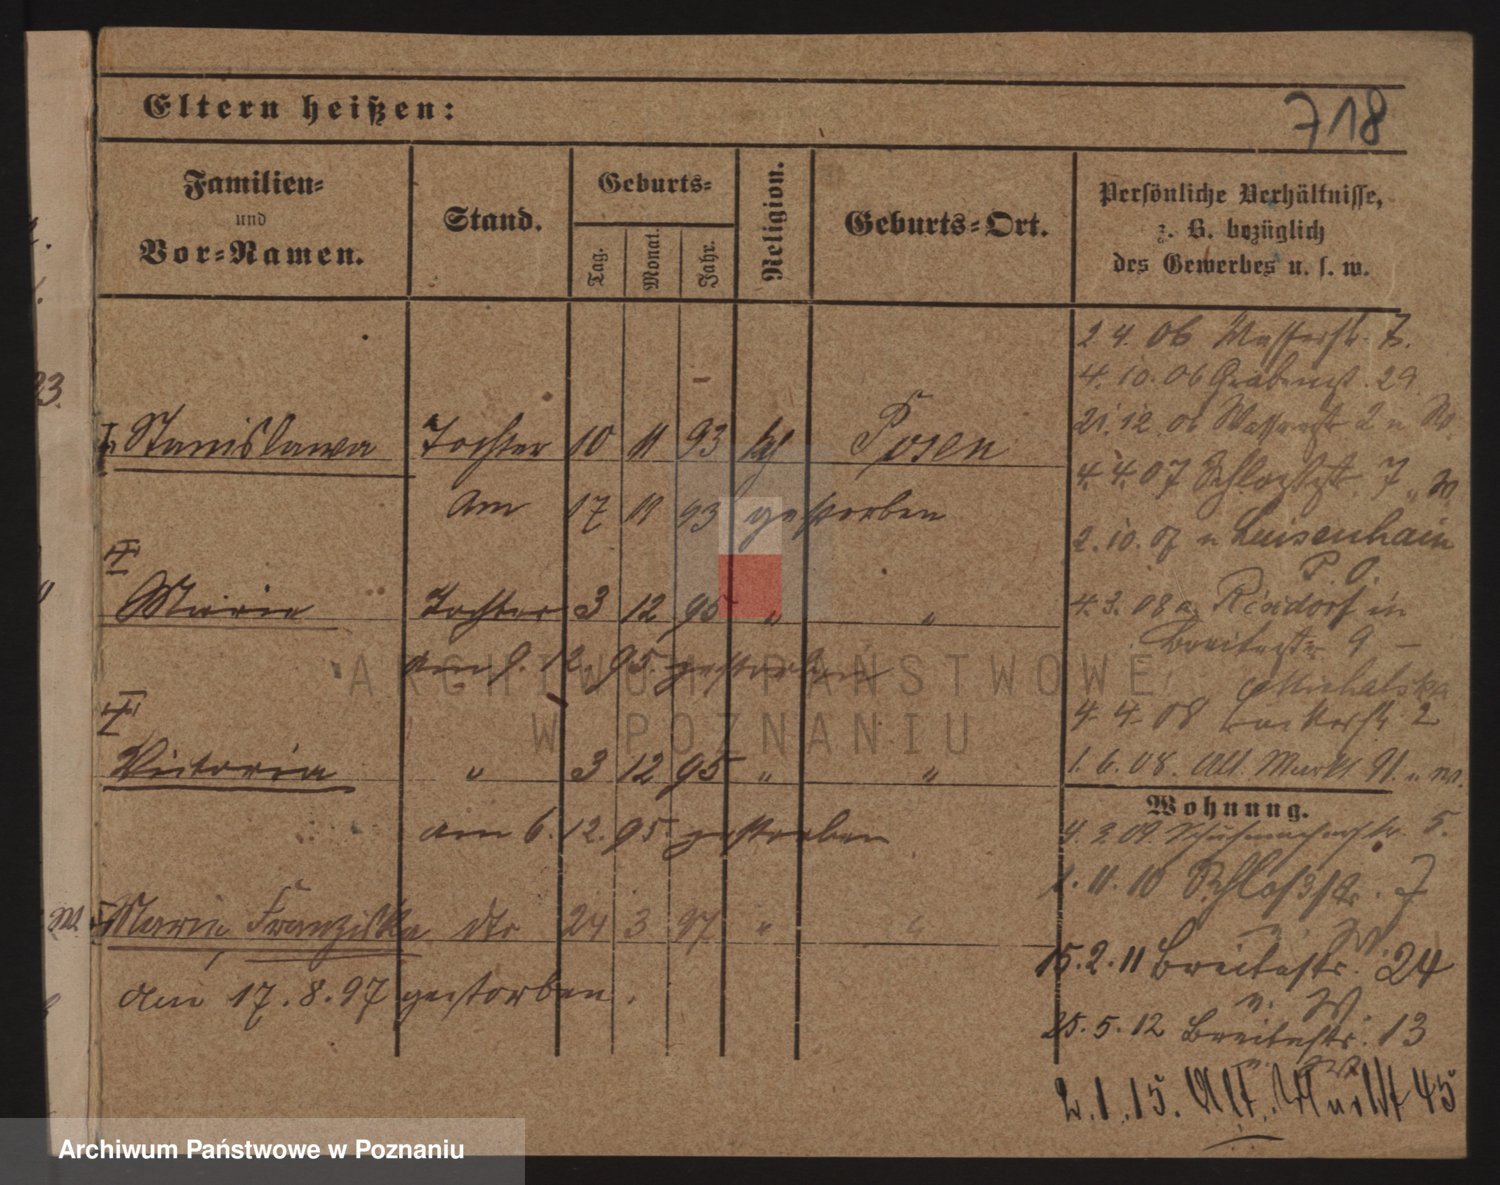 Eltern heißen:
718
Familien-
und
Vor-Namen.
Stand.
Geburts-
Tag.
Monat.
Jahr.
Religion.
Geburts-Ort.
Persönliche Verhältnisse,
z. B. bezüglich
des Gewerbes u. s. w.
Stanislawa Tochter 10 11 93 kf Posen
am 17 11 93 gestorben
Marie Tochter 3 12 95 " "
am 9. 12. 95. gestorben
Victoria " 3 12 95 " "
am 6. 12. 95. gestorben
Marie, Franziska dto 24 3 97 " "
am 17. 8. 97 gestorben.
2 4. 06 Wasserstr. 7.
4. 10. 06 Grabenst. 29
21. 12. 06 Wasserstr 2 u W.
4. 4. 07 Schlosstr 7 " W
2. 10. 07 n Luisenhain
P. O.
4. 3. 08 a. Rixdorf in
Breitestr. 9 –
Michalska
4. 4. 08 2
1. 6. 08. Alt. Markt 91. u W.
Wohnung.
4. 3. 09. Schuhmacherstr. 5.
1. 11. 10 Schloßstr. 7
W.
15. 2. 11 Breitestr. 24
u. W.
25. 5. 12 Breitestr. 13
2. 1. 15. Alt. Markt 45
ARCHIWUM PAŃSTWOWE
W POZNANIU
Archiwum Państwowe w Poznaniu